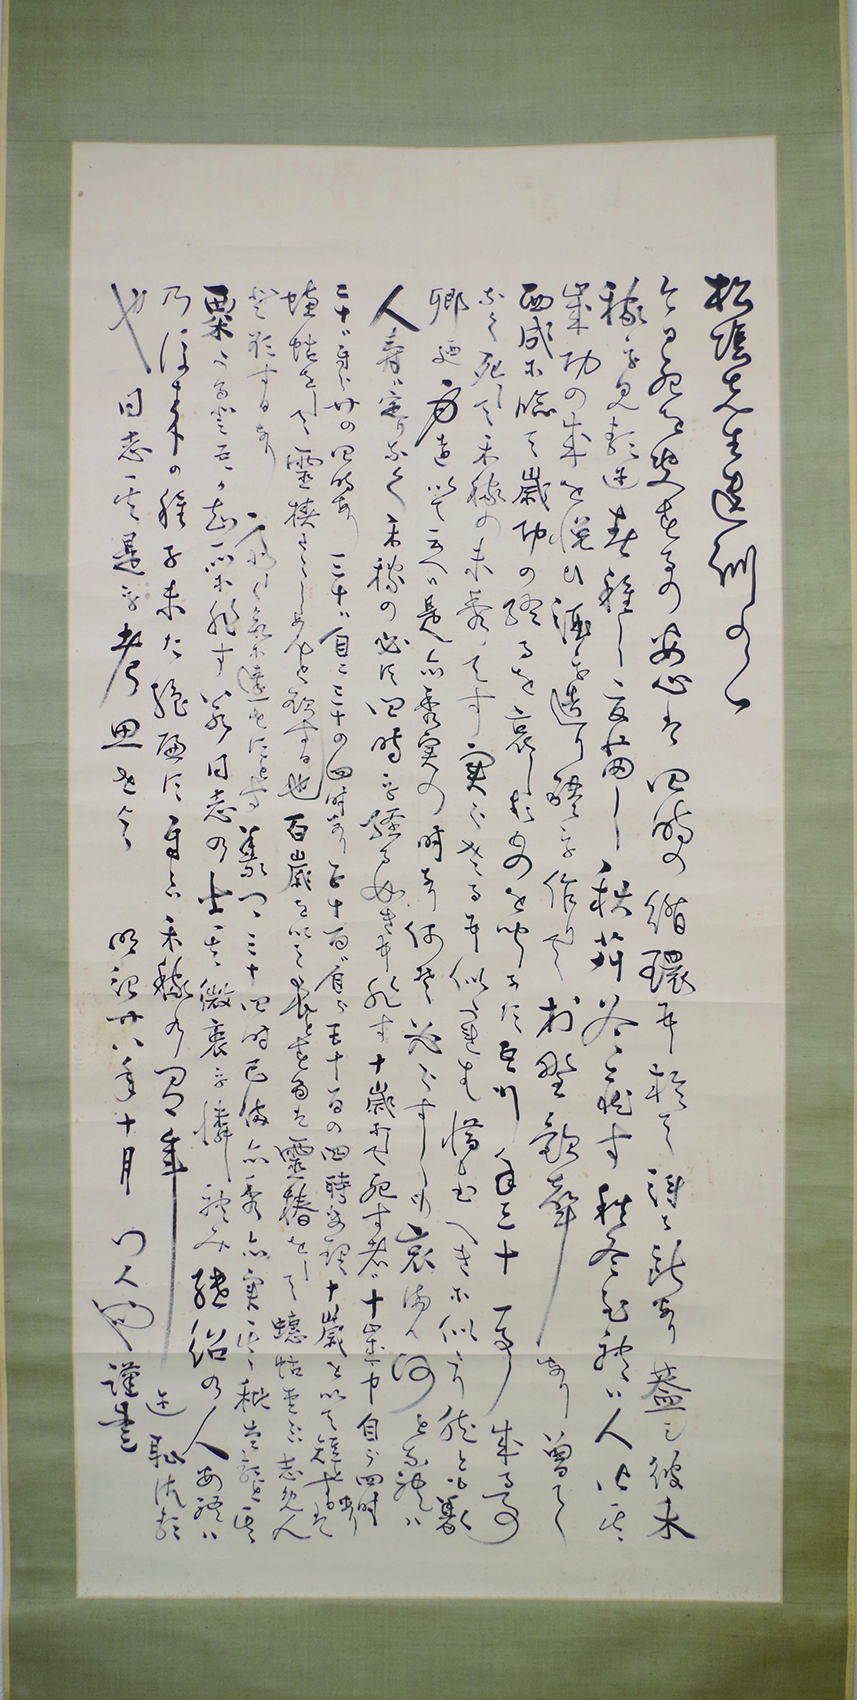 松陰先生遺訓の一
今日死を決するの安心は四時の循環に於て得る所あり蓋し彼禾
稼を見るに春種し夏苗し秋苅冬蔵す秋冬至れは人皆其
歳功の成を悦ひ酒を造り醴を作りて村野歓聲あり曽て
西成に臨て歳功の終るを哀しむものを聞かす吾行年三十一事成る事
なく死して禾稼の未秀てす実らさるに似惜むへきに似たり然とも義
卿の身を以て云へは是亦秀実の時なり何そ必すしも哀まん何となれは
人寿は定りなく禾稼の必す四時を経る如きに非す十歳にて死する者は十歳中自ら四時あり
二十は自ら廿の四時あり三十は自ら三十の四時あり五十百は自ら五十百の四時あり十歳を以て短とするは
蟪蛄をして霊椿たらしめんと欲する也百歳を以て長とするは靈椿をして蟪蛄たらしめん
と欲するなり斉しく命に達せすとす義卿三十四時已備亦秀亦実其秕たると其
粟たると吾か知る所に非す若同志の士其微衷を憐み継紹の人あれは
乃後来の種子未た絶へす自ら禾稼の有年に恥さる
也同志其是を考思せよ明治廿八年十月門人謹書